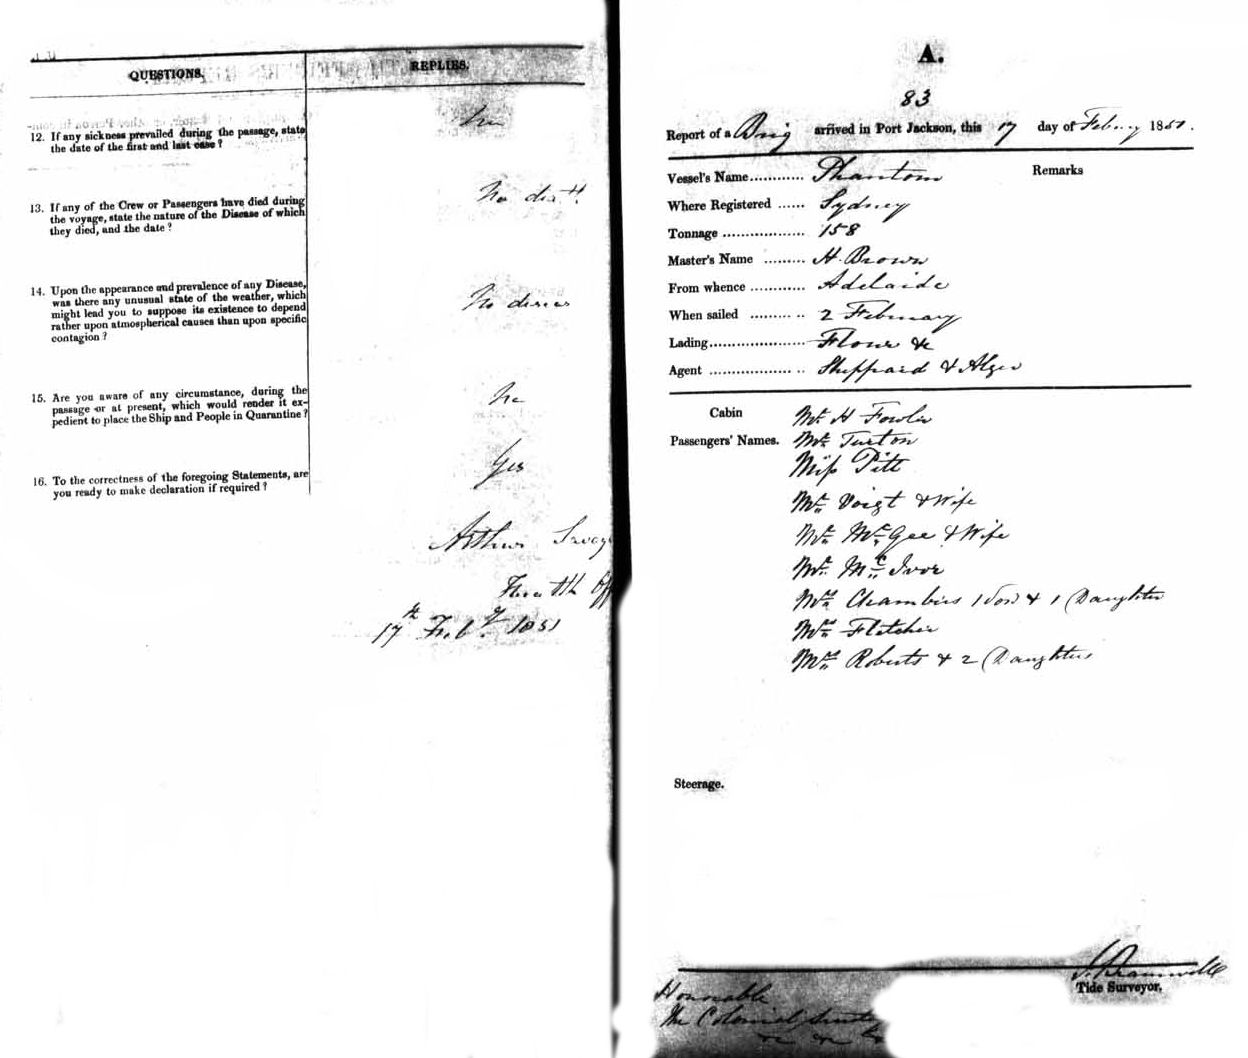 QUESTIONS.
REPLIES.
12. If any sickness prevailed during the passage, state
the date of the first and last case ?
No
13. If any of the Crew or Passengers have died during
the voyage, state the nature of the Disease of which
they died, and the date ?
No death
14. Upon the appearance and prevalence of any Disease,
was there any unusual state of the weather, which
might lead you to suppose its existence to depend
rather upon atmospherical causes than upon specific
contagion ?
No disease
15. Are you aware of any circumstance, during the
passage or at present, which would render it ex-
pedient to place the Ship and People in Quarantine ?
No
16. To the correctness of the foregoing Statements, are
you ready to make declaration if required ?
Yes
Arthur
Health Off
17th Feby. 1851
A.
83
Report of a Brig arrived in Port Jackson, this 17 day of 1851.
Vessel's Name............ Phantom
Remarks
Where Registered ...... Sydney
Tonnage .................. 158
Master's Name ......... H. Brown
From whence ............ Adelaide
When sailed ......... .. 2 February
Lading...................... Flour &c
Agent .................. .. Sheppard & Alger
Cabin
Passengers' Names.
Mr H Fowler
Mr Turton
Miss Pitt
Mr Voigt & Wife
Mr McGee & Wife
Mr McIvor
Mrs Chambers 1 Son & 1 Daughter
Mrs Fletcher
Mrs Roberts & 2 Daughters
Steerage.
Tide Surveyor.
Honorable
The Colonial
&c &c &c